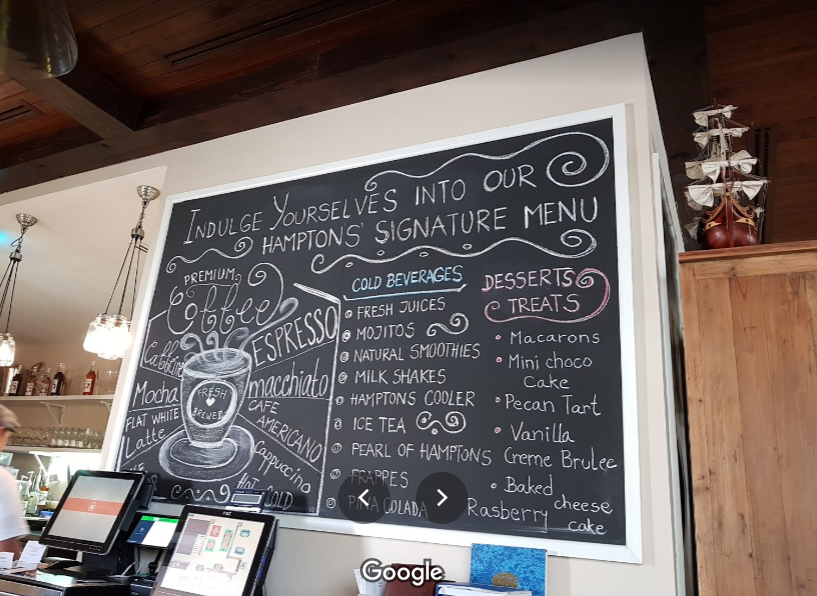 INDULGE YOURSELVES INTO OUR
HAMPTONS' SIGNATURE MENU
PREMIUM
Coffee
ESPRESSO
Caffeine
macchiato
Mocha
FRESH
BREWED
CAFE
AMERICANO
FLAT WHITE
Latte
Cappucino
HOT
COLD
COLD BEVERAGES
FRESH JUICES
MOJITOS
NATURAL SMOOTHIES
MILK SHAKES
HAMPTONS COOLER
ICE TEA
PEARL OF HAMPTONS
FRAPPES
PINA COLADA
DESSERTS
TREATS
Macarons
Mini choco
Cake
Pecan Tart
Vanilla
Creme Brulee
Baked
Rasberry cheese
cake
Google